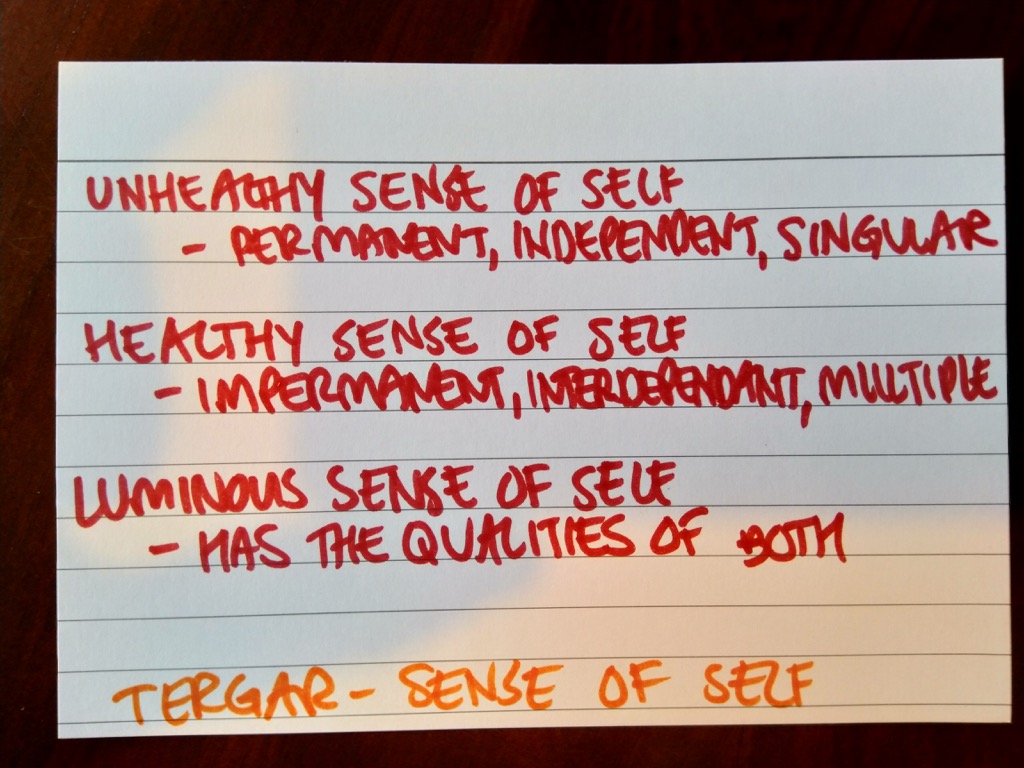 UNHEALTHY SENSE OF SELF
- PERMANENT, INDEPENDENT, SINGULAR
HEALTHY SENSE OF SELF
- IMPERMANENT, INTERDEPENDANT, MULTIPLE
LUMINOUS SENSE OF SELF
- HAS THE QUALITIES OF BOTH
TERGAR - SENSE OF SELF